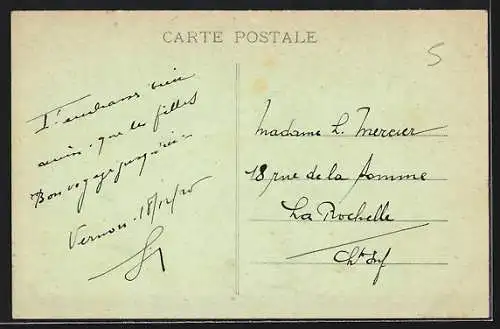 CARTE POSTALE
5
T'embrasse bien
ainsi que les filles
Bon voyage jusqu'ici
Vernon 18/12/20
Madame L. Mercier
18 rue de la Pomme
La Rochelle
Chte Inf